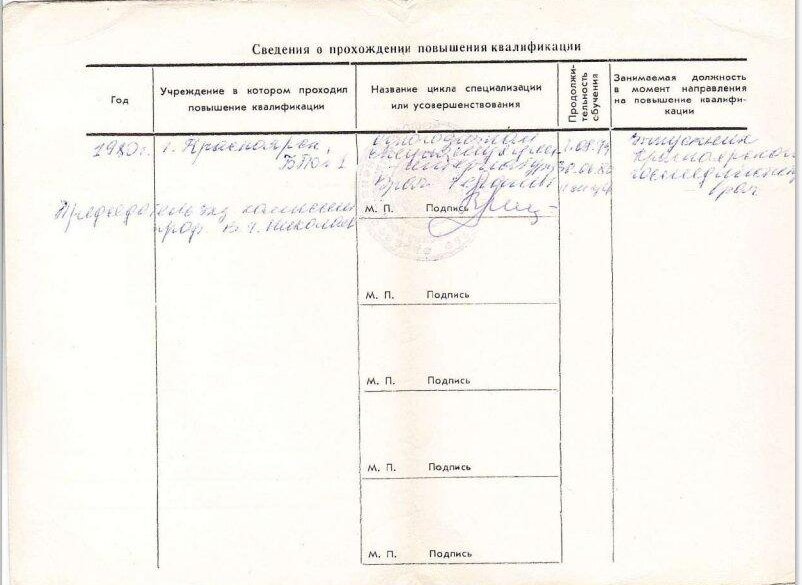 Сведения о прохождении повышения квалификации
Год
Учреждение в котором проходил
повышение квалификации
Название цикла специализации
или усовершенствования
Продолжи-
тельность
обучения
Занимаемая должность
в момент направления
на повышение квалифи-
кации
1980г.
г. Красноярск,
врач
выпускник
врач
Председатель экз комиссии
проф.
М. П. Подпись
М. П. Подпись
М. П. Подпись
М. П. Подпись
М. П. Подпись